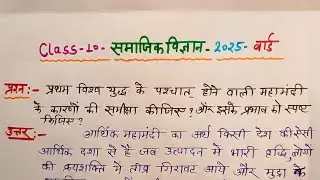 Class-10- समाजिक विज्ञान-2025- वार्ड
प्रश्न:- प्रथम विश्व युद्ध के पश्चात् होने वाली महामंदी
के कारणों की समीक्षा कीजिए? और इसके प्रभाव को स्पष्ट
किजिए?
उत्तर:- आर्थिक महामंदी का अर्थ किसी देश की ऐसी
आर्थिक दशा से है जब उत्पादन में भारी वृद्धि, लोगों
की क्रयशक्ति में तीव्र गिरावट आये और मुद्रा के